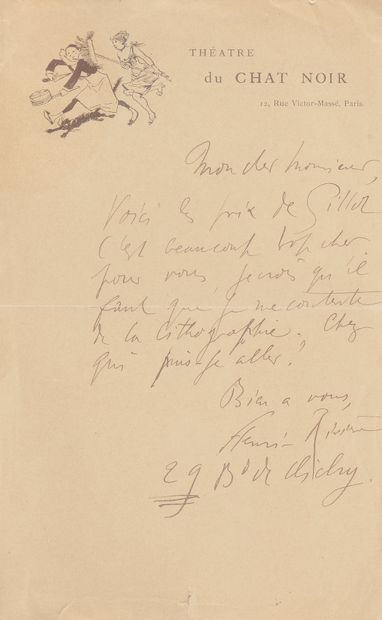 THÉATRE
du CHAT NOIR
12, Rue Victor-Massé, Paris.
Mon cher monsieur,
Voici les prix de Gillot
C'est beaucoup trop cher
pour vous, je crois qu'il
faut que je me contente
de la lithographie. Chez
qui puis-je aller?
Bien a vous,
Henri Rivière
29 Bd de Clichy.